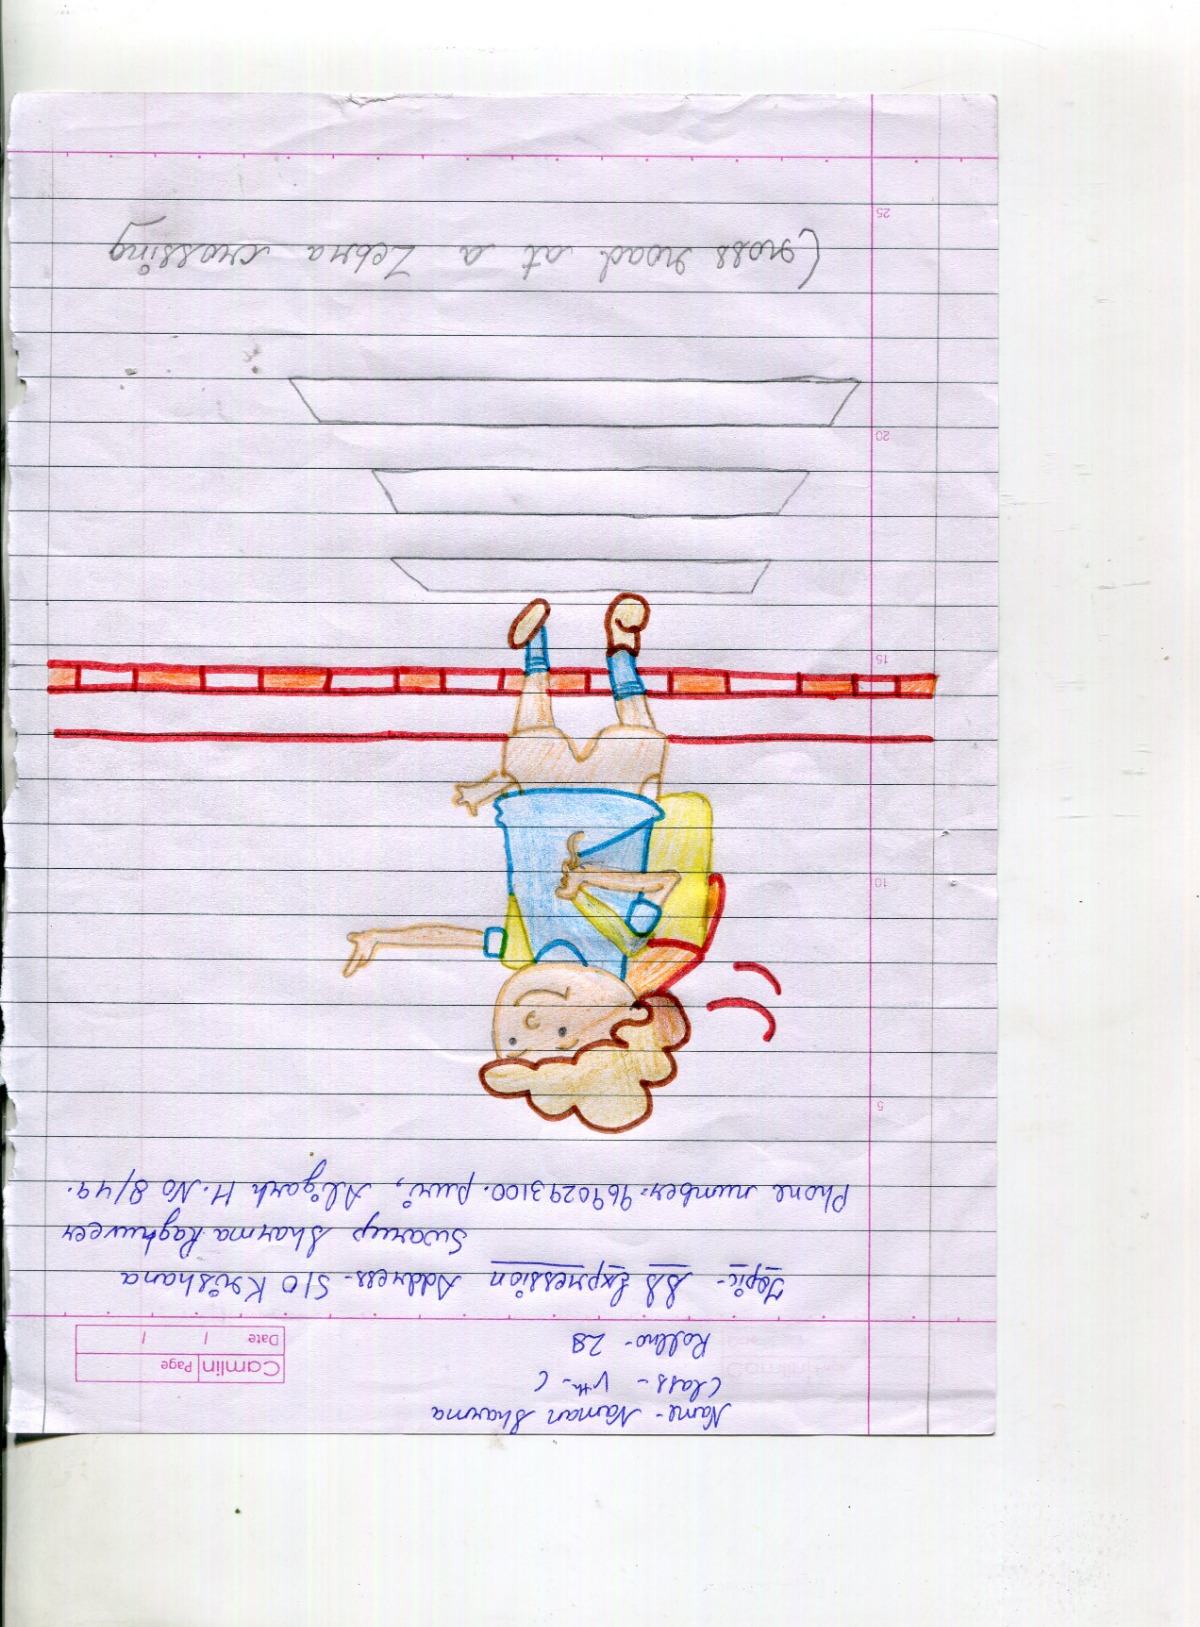 Name- Naman Sharma
Class - Vth- C
Camlin Page
Roll no- 28
Date / /
Topic- Expression Address- S/O Krishana
Swarup Sharma Raghuveer
Phone number- 9690293100. puri, Aligarh H. No 8/49.
5
10
15
20
Cross road at a Zebra crossing
25